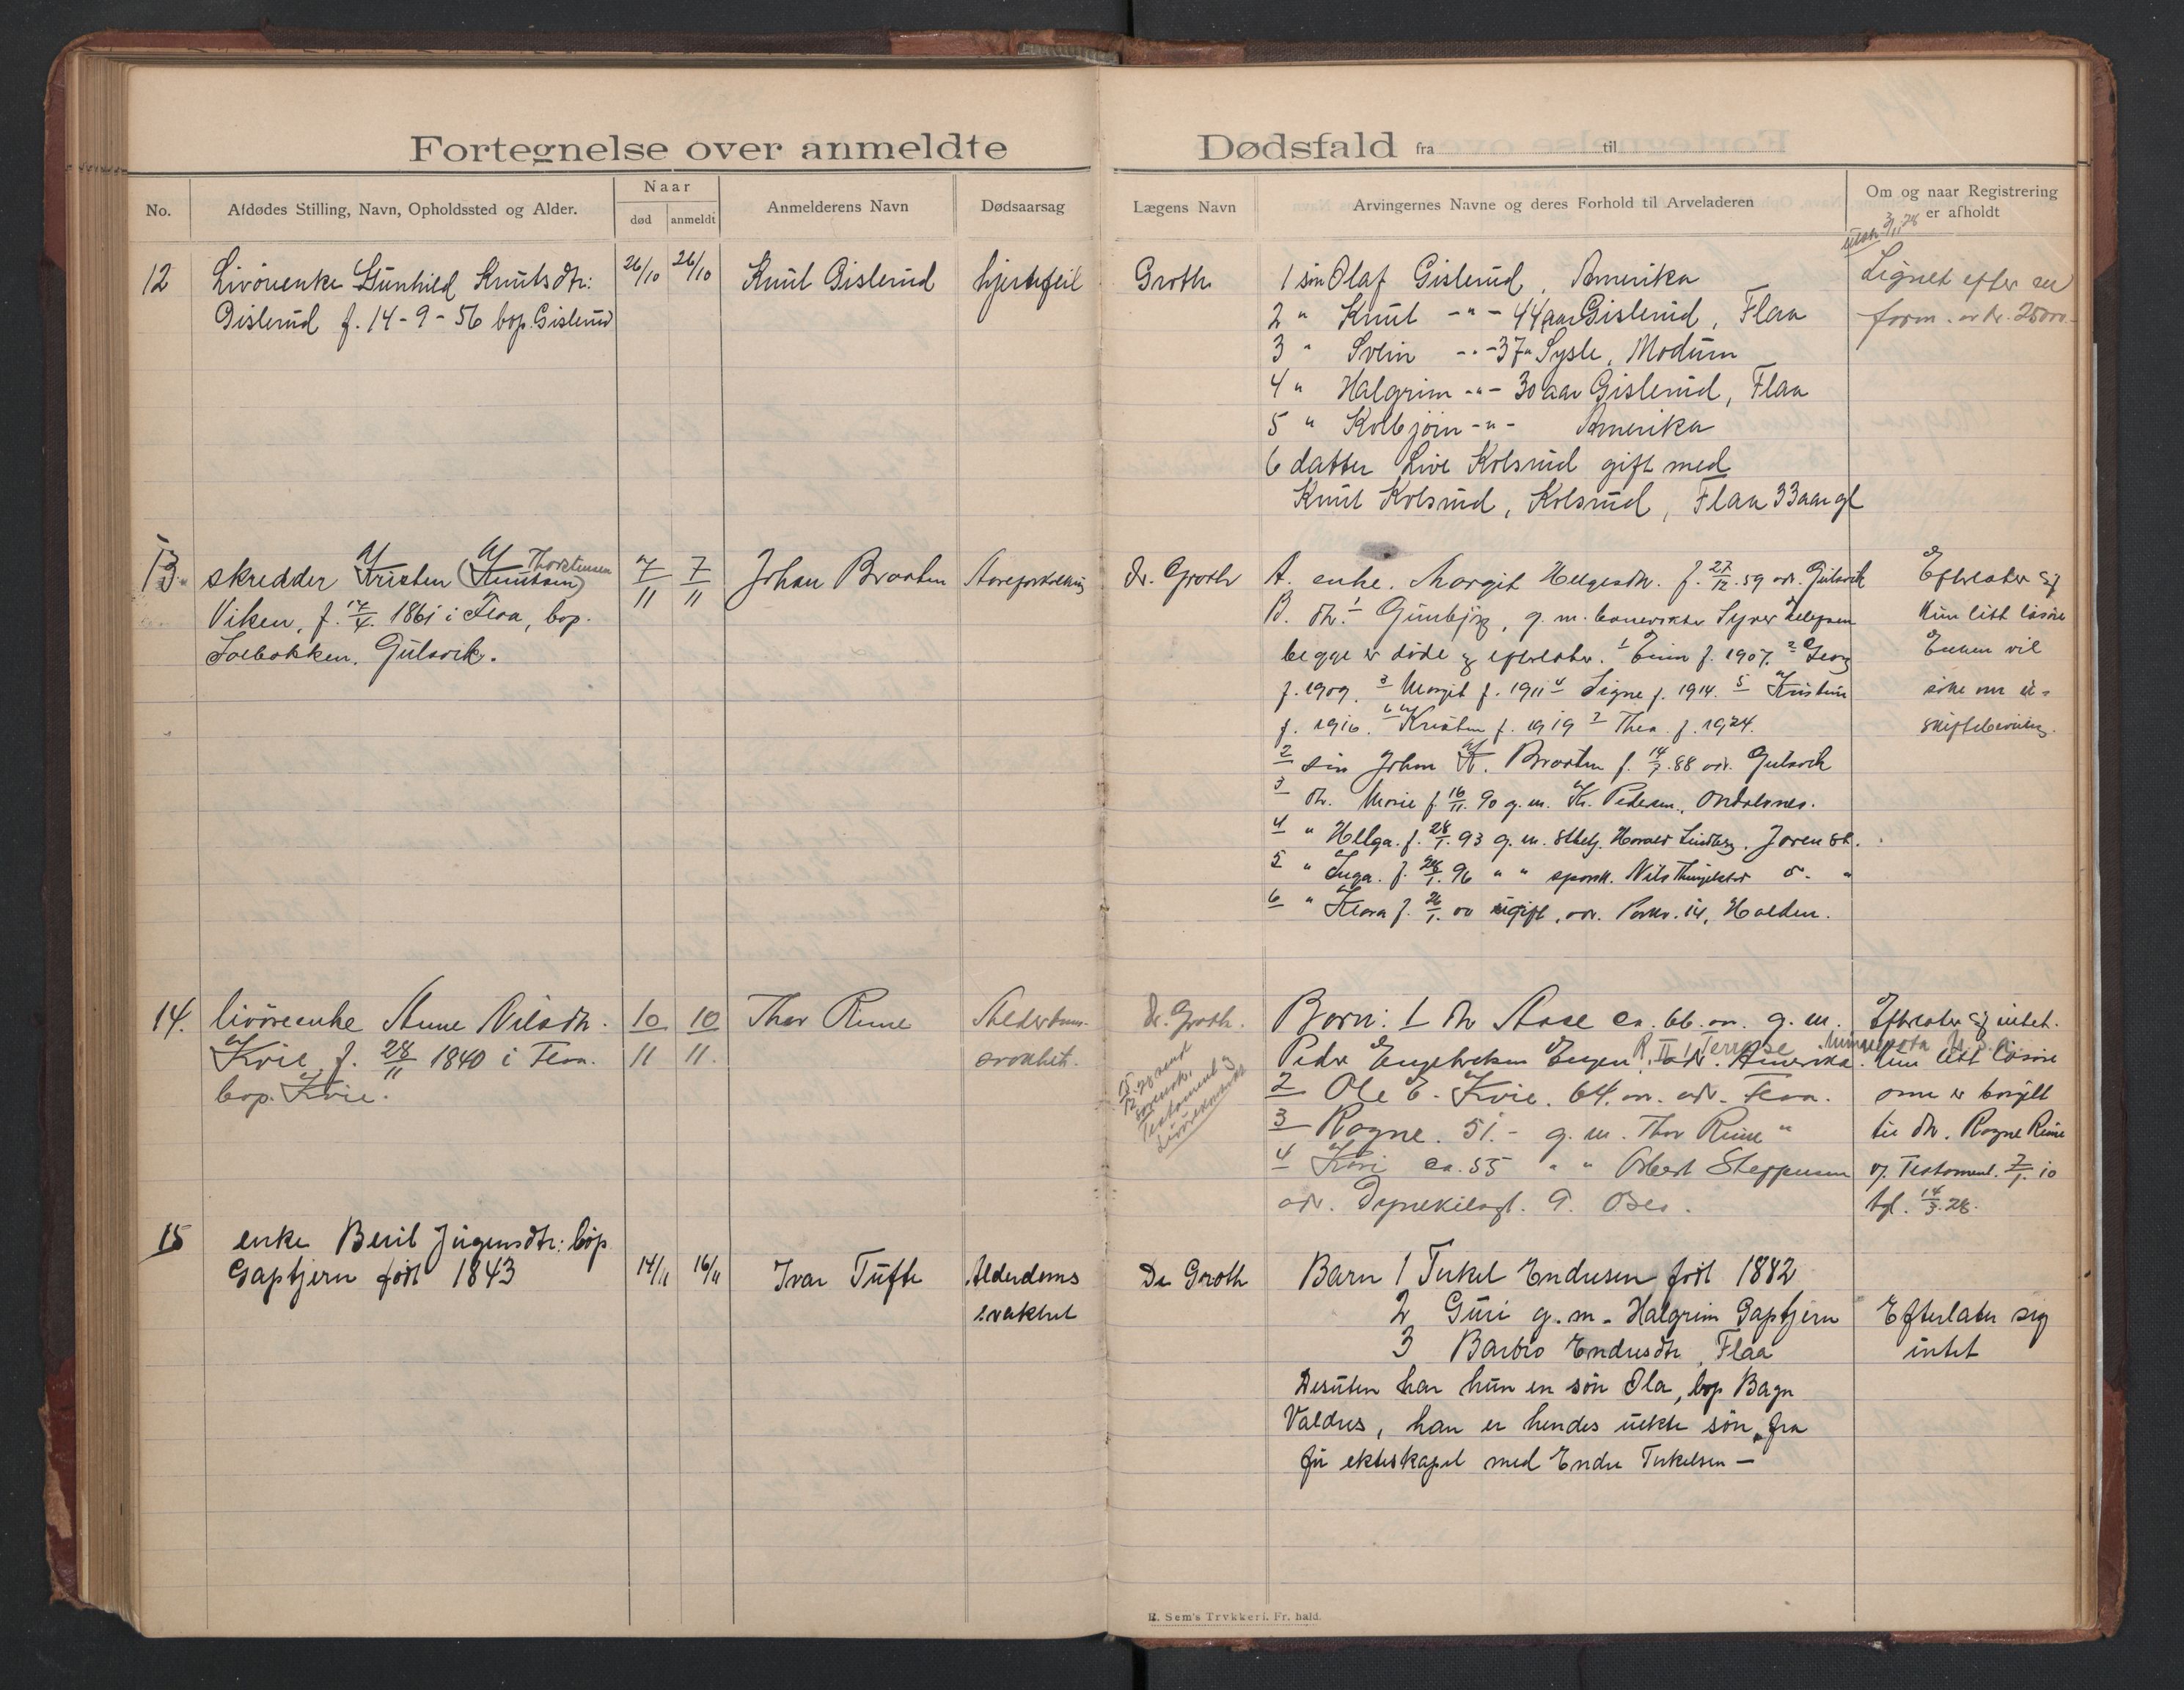 Fortegnelse over anmeldte Dødsfald fra til
No.
Afdødes Stilling, Navn, Opholdssted og Alder.
Naar
død anmeldt
Anmelderens Navn
Dødsaarsag
Lægens Navn
Arvingernes Navne og deres Forhold til Arveladeren
Om og naar Registrering
er afholdt
12 Livörenke Gunhild Knutsdtr:
Gislerud f. 14-9-56 bop. Gislerud
26/10 26/10
Knut Gislerud
hjertefeil
Groth
1 sön Olaf Gislerud, Amerika
2 " Knut -"- 44 aar Gislerud, Flaa
3 " Svein -"- 37 " Sysle, Modum
4 " Halgrim -"- 30 aar Gislerud, Flaa
5 " Kolbjörn -"- Amerika
6 datter Live Kolsrud gift med
Knut Kolsrud, Kolsrud, Flaa 33 aar gl
3/11 28
Lignet efter en
form. av kr. 25000.-
13. skredder Kristen (Knutsen) Thorstensen
Viken, f. 17/4. 1861 i Flaa, bop.
Gulsvik.
7/11 7/11
Johan Braaten
Dr. Groth
A. enke. Margit Helgesdtr. f. 27/12. 59 adr. Gulsvik
B. dtr. 1 Gunbjør, g. m. Syver Helgesen
begge er døde og efterlater. 1 Einar f. 1907. 2 Georg
f. 1909. 3 Margit f. 1911 4 Signe f. 1914. 5 Kristine
f. 1916. 6 Kristen f. 1919 7 Thea. f. 1924.
2 sön Johan K. Braaten f. 14/7. 88 adr. Gulsvik
3 dtr. Marie f. 16/11. 90 g. m. Kr. Pedersen, Åndalsnes.
4 " Helga. f. 28/1. 93 g. m. Harald Lindberg. Jaren st.
5 " Inga. f. 28/1. 96 " " Nils d. "
6 " Klara f. 26/1. 00 ugift, adr. Halden.
Efterlater sig
kun litt løsøre
Enken vil
søke om u-
skiftebevilling.
14. livöreenke Anne Nilsdtr.
Kvie, f. 28/11 1840 i Flaa.
bop. Kvie.
10/11 10/11.
Thor Rime
Alderdoms-
svakhet.
Dr. Groth.
15/12. 28 sendt
sorensk.
Testament og
Livörekontrakt
Barn: 1 dtr Aase ca. 66. aar. g. m.
Peder Engebretsen Engen, R. II Terrase Minnesota U.S.A. adr. Amerika.
2 Ole E. Kvie. 64. aar. adr. Flaa.
3 Ragne. 51. - g. m. Thor Rime "
4 Kari ca. 55 " " Albert Steffensen
adr. Dynekilegt. 9. Oslo.
Efterlater sig intet.
Kun litt løsøre
som er borgitt
til dtr. Ragne Rime
v. Testament. 7/1. 10
tgl. 14/3. 28.
15 enke Berit Jörgensdtr: bop
Gaptjern født 1843
14/11 16/11
Ivar Tufte
Alderdoms
svakhet
Dr Groth
Barn 1 Terkel Endresen født 1882
2 Guri g. m. Halgrim Gaptjern
3 Barbro Endresdtr, Flaa
Desuten har hun en sön Ola, bop Bagn
Valdres, han er hendes uekte sön, fra
för ekteskapet med Endre Terkelsen —
Efterlater sig
intet
R. Sem's Trykkeri. Fr. hald.